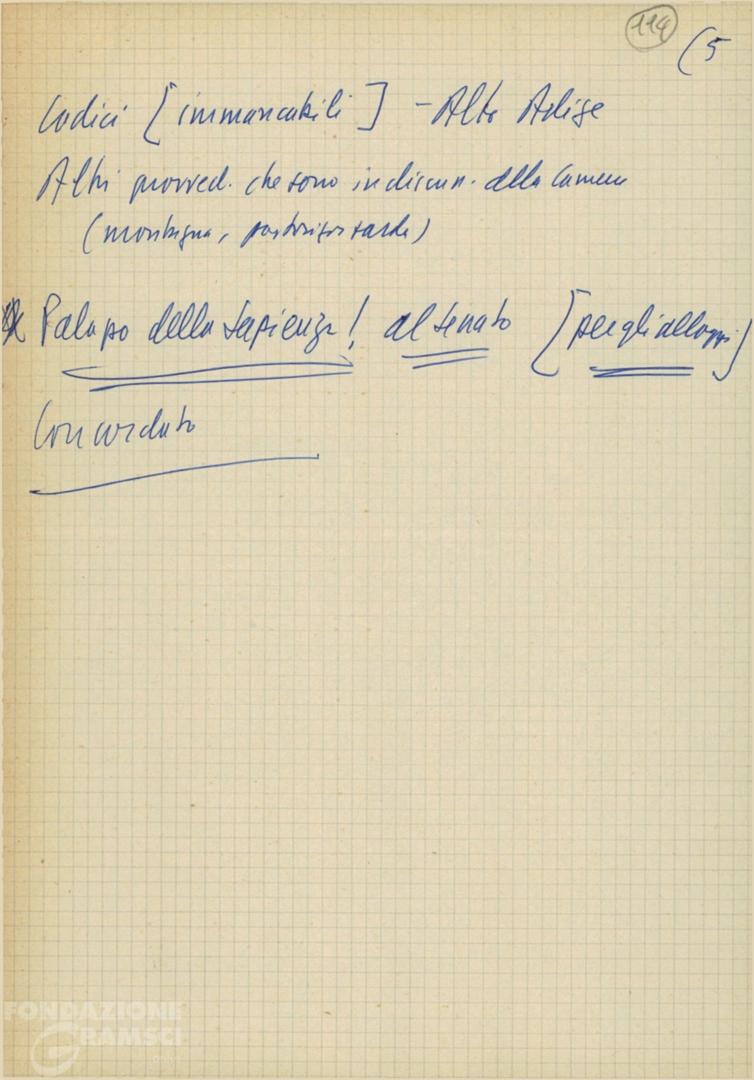 114
(5
Codici [immancabili] - Alto Adige
Altri provved. che sono in discuss. della Camera
(montagna, pastorizia sarda)
Palazzo della Sapienza! al Senato [per gli alloggi]
Concordato
FONDAZIONE
GRAMSCI